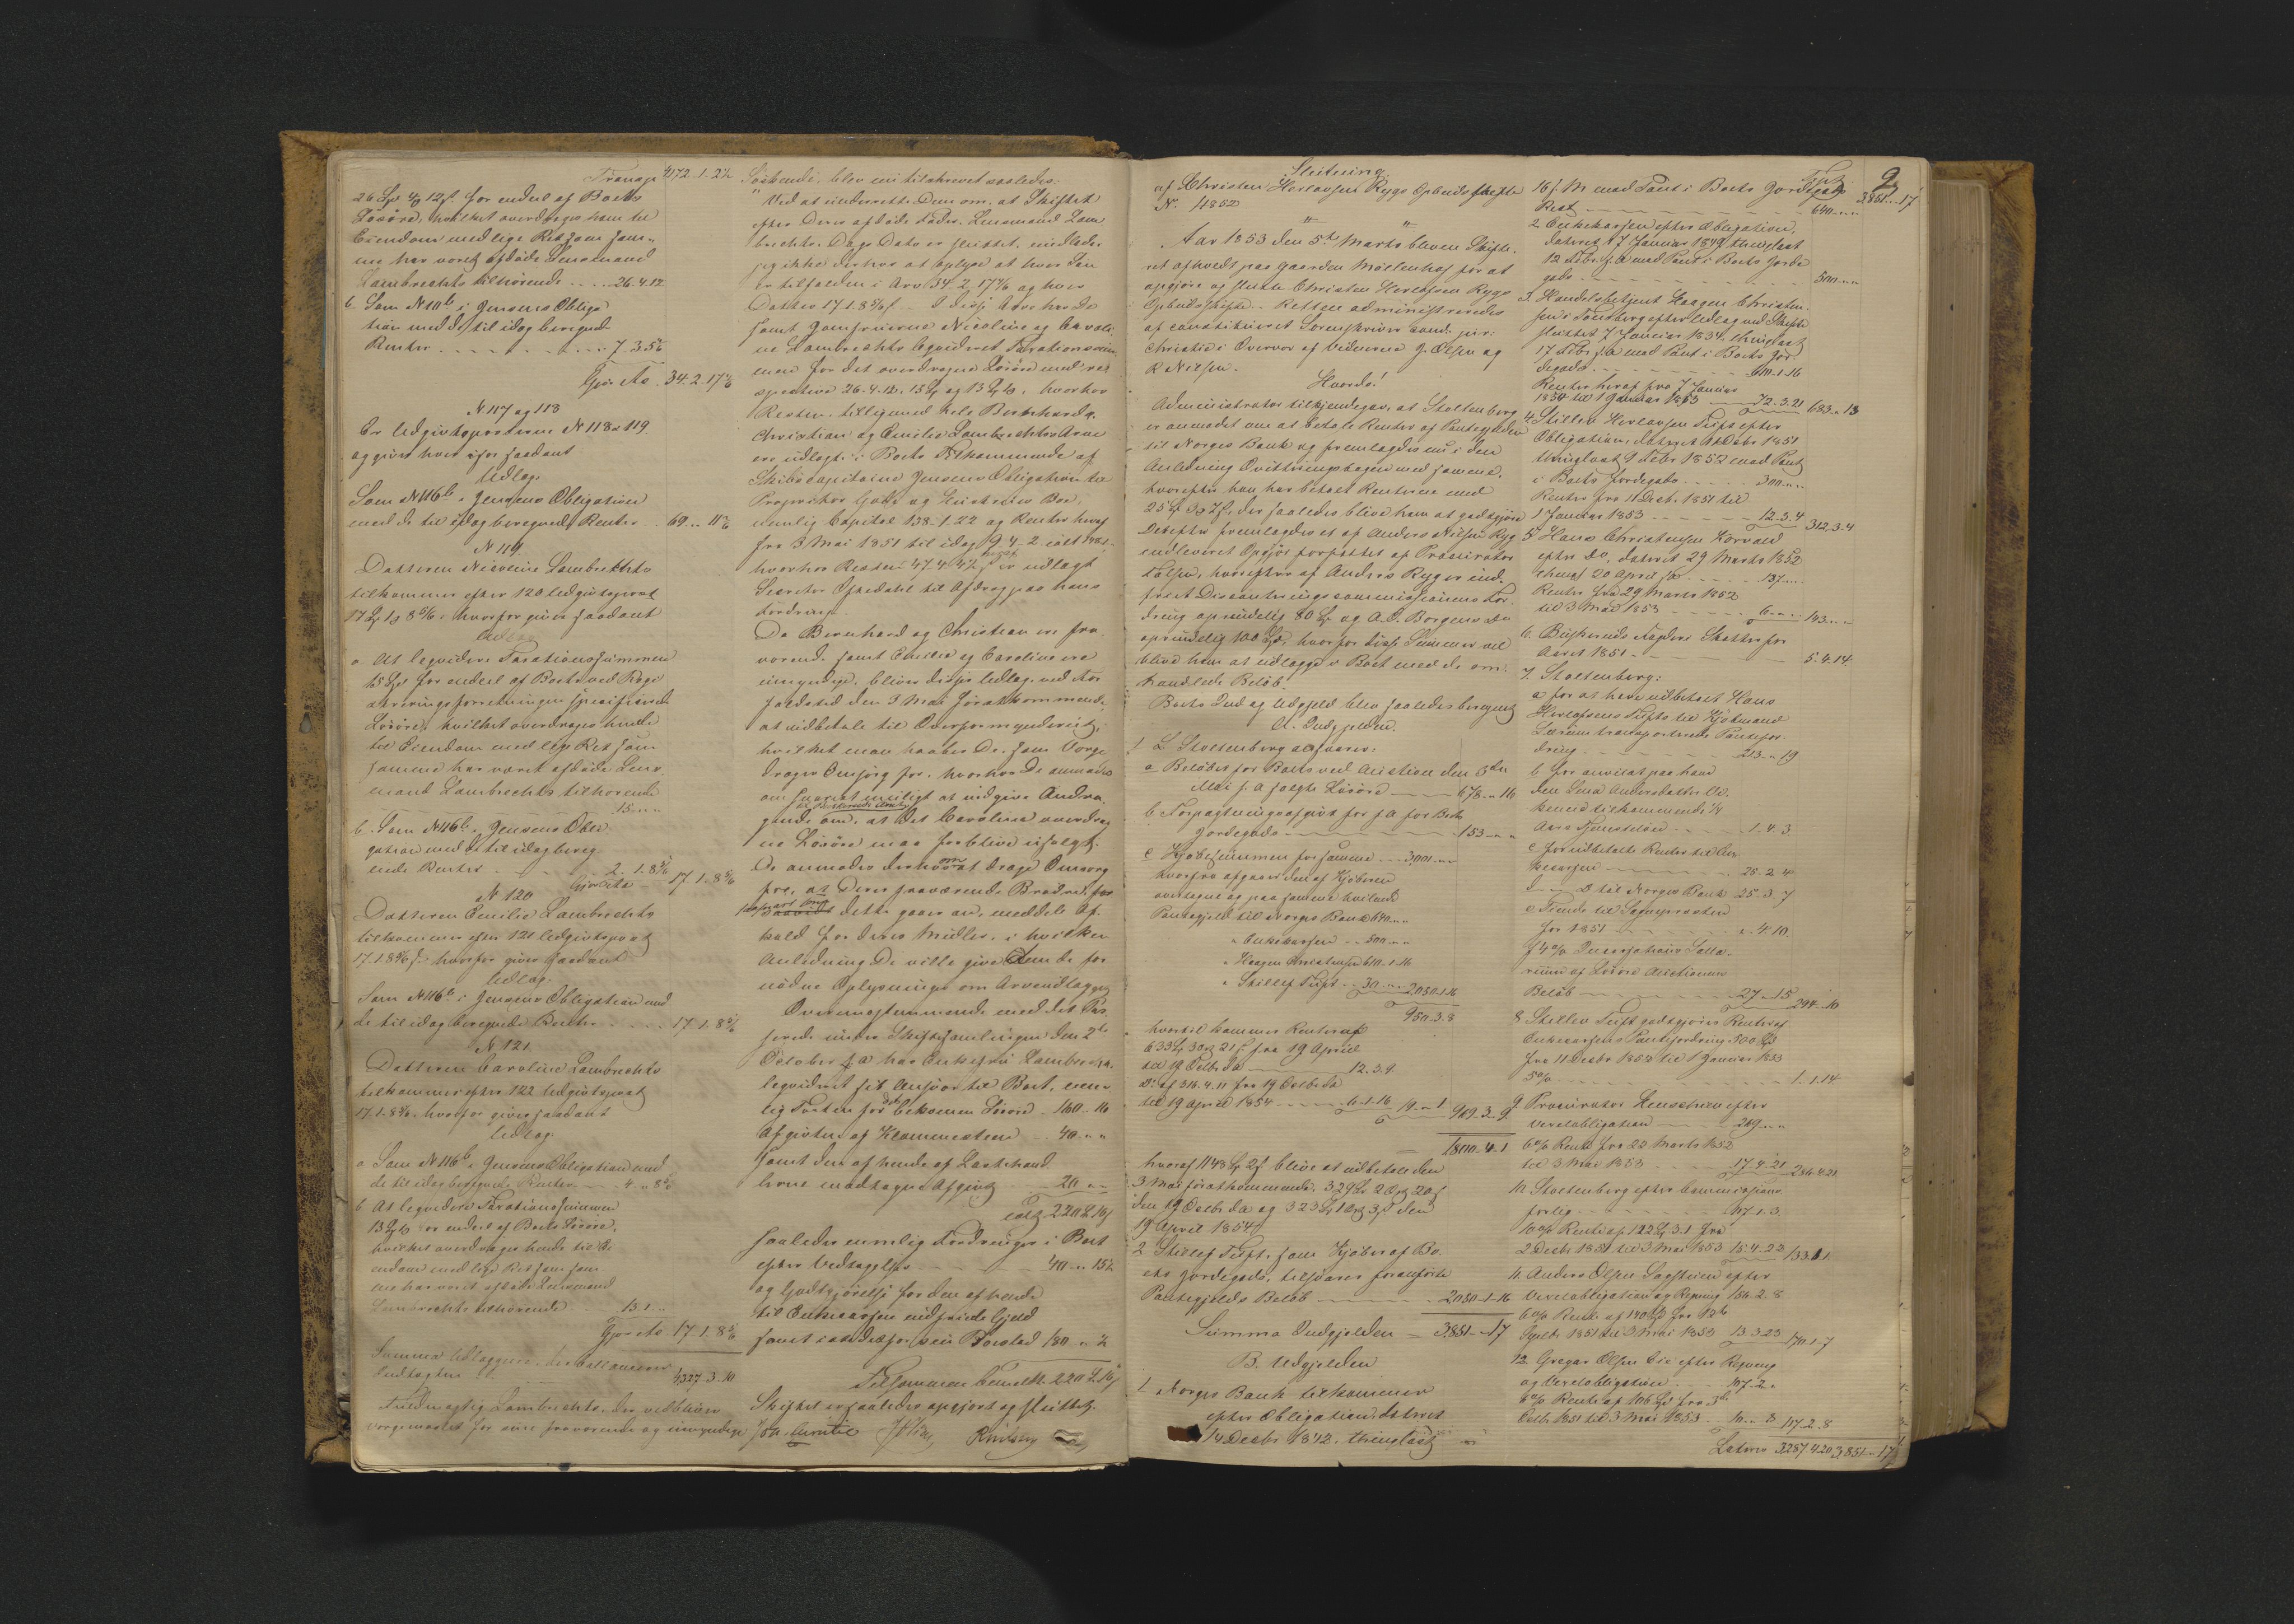 Transp. 4172.1.2½
26 Spd 4 12 s. for endeel af Boets
Løsøre, hvilket overdrages ham til
Eiendom med lige Ret som sam-
me har været afdøde Lensmand
Lambrechts tilhørende 26.4.12
b. Som N 116b i Jensens Obliga
tion med de til idag beregnede
Renter 7.3.5
Gjør Ao. 34.2.17
N 117 og 118
Er Udgivtsposterne N 118 & 119
og gives hver især saadant
Udlag.
Som N 116b i Jensens Obligation
med de til idag beregnede Renter 69.. 11
N 119
Datteren Nicoline Lambrechts
tilkommer efter 120 Udgivtspost
17 1 8 hvorfor gives saadant
Udlag
a. At leqvidere Taxationssummen
15 Spd for endeel af Boets ved Regi
streringsforretningen specificerede
Løsøre, hvilket overdrages hende
til Eiendom med lige Ret som
samme har været afdøde Lens
mand Lambrechts tilhørende
15....
b. Som N 116b i Jensens Obli
gation med de til idag bereg
nede Renter 2.1.8
Gjør Ao 17.1.8
N 120
Datteren Emilie Lambrechts
tilkommer efter 121 Udgivtspost
17.1.8 hvorfor gives saadant
Udlag.
Som N 116b i Jensens Obligation med
de til idag beregnede Renter 17.1.8
N 121
Datteren Caroline Lambrechts
tilkommer efter 122 Udgivtspost
17.1.8 hvorfor gives saadant
Udlag.
a Som N 116b i Jensens Obligation med
de til idag beregnede Renter 4..8
b At leqvidere Taxationssummen
13 for endeel af Boets Løsøre,
hvilket overdrages hende til Ei
endom med lige Ret som sam
me har været afdøde Lensmand
Lambrechts tilhørende 13.1..
Gjør Ao 17.1.8
Summa Udlæggene der ballancerer
Indtægten 4327.3.10
Lambrechts, der vil blive
værgemaal for sine fraværende og umyndige
Søskende, blev nu tilskrevet saaledes:
"Ved at underrette Dem om, at Skiftet
efter Deres afdøde Fader, Lensmand Lam
brechts Dags Dato er sluttet, undlader
jeg ikke derhos at oplyse at hver Søn
er tilfalden i Arv 34.2.17 og hver
Datter 17.1.8
samt Jomfruerne Nicoline og Caroli
ne Lambrechts leqvideret Taxationssum
men for det overdragne Løsøre med re
spective 26.4.12, 15 og 13 hvorhos
Resten tilligemed hele Bernhards,
Christian og Emilie Lambrechts Arve
ere udlagte i Boets Tilkommende af
Skibscapitaine Jensens Obligation til
nemlig Capital 138-1-22 og Renter heraf
fra 3 Mai 1851 til idag 9.4.2
hvorhos Resten 47.4 er udlagt
til Afdrag paa hans
Fordring.
Da Bernhard og Christian ere fra
værende samt Emilie og Caroline ere
umyndige, bliver disses Udlag ved For
faldstid den 3 Mai førstkommende,
at udbetale til Overformynderiet,
hvilket man haaber De, som Værge
drager Omsorg for, hvorhos De anmodes
om snarest muligt at indgive Andra
gende om, at det Caroline overdrag
ne Løsøre maa forblive usolgt.
De anmodes derhos om at drage Omsorg
for, at Deres fraværende Brødre,
dette gaaer an, meddeles Af
kald for deres Midler, i hvilken
Anledning De ville give dem de for
nødne Oplysninger om Arveudlægget
Overensstemmende med det Pas
serede under Skiftesamlingen den 2de
October f. A. har Enkefru Lambrechts
leqvideret sit Ansvar til Boet, nem
lig Taxten for det bekomne Løsøre 160..16
Afgivten af Klammesteen 40....
samt den af hende af
lerne modtagne Afgivt 20....
ialt 220 16
saaledes nemlig Fordringer i Boet
efter Vedtagelse 40..15½
og Godtgjørelse for den af hende
til Enkekassen indfriede Gjæld
180..½
Tilsammen 220 16
Skiftet er saaledes opgjort og sluttet.
Slutning
af Christen Herlofsen Rygs Opbudsskifte
N. 4 1852
Aar 1853 den 5te Marts blev Skifte-
ret afholdt paa Gaarden Møllenhof for at
opgjøre og slutte Christen Herlofsen Rygs
Opbudsskifte. Retten administreredes
af constitueret Sorenskriver cand. jur.
Christie i Overvær af Vidnerne J. Olsen og
R Nilsen.
Hvorda!
Administrator tilkjendegav, at Stoltenberg
er anmodet om at betale Renter af Pantegjælden
til Norges Bank og fremlagdes nu i den
Anledning Qvitteringsbogen med samme,
hvorefter han har betalt Renterne med
25 3 7 s, der saaledes blive ham at godtgjøre
Derefter fremlagdes et af Anders Nilsen Ryg
indleveret Opgjør forfattet af Procurator
hvorefter af Anders Ryg er ind
friet Discounteringscommissionens For
dring oprindelig 80 og A. C. Borgens Do
oprindelig 100 hvorfor disse Summer vil
blive ham at udlægge i Boet med de om-
handlede Beløb.
Boets Ind og Udgjæld blev saaledes beregnet
A. Indgjælden.
1 L. Stoltenberg ansvarer:
a Beløbet for Boets ved Auction den 3die
Mai f. A. solgte Løsøre 678..16
b Forpagtningsafgivt for f. A. for Boets
Jordegods 153....
c Kjøbesummen for samme 3000....
hvorfra afgaaer den af Kjøberen
overtagne og paa samme hvilende
Pantegjæld til Norges Bank 640....
" Enkekassen 500....
" Haagen Christensen 610.1.16
" Stillef Tuft 300.... 2050.1.16
950.3.8
hvortil kommer Renter af
633 3 21 fra 19 April
til 19 Octbr. da 12.3.9
Do af 316.4.11 fra 19 Octbr. da
til 19 April 1854 6.1.16 19..1 969.3.9
1800.4.1
hvoraf 1148 2 blive at udbetale den
3 Mai førstkommende, 329 2 20
den 19 Octbr. da og 323 1 3 den
19 April 1854
2 Stillef Tuft, som Kjøber af Bo
ets Jordegods, tilsvarer foranførte
Pantegjælds Beløb 2050.1.16
Summa Indgjælden 3851..17
B. Udgjælden
1 Norges Bank tilkommer
efter Obligation dateret
14 Decbr 1842, thinglæst
9
Tspt. 3851..17
16 s. M. med Pant i Boets Jordegods
Rest 640....
2 Enkekassen efter Obligation,
dateret 17 Januar 1849, thinglæst
12 Febr. s. A. med Pant i Boets Jorde
gods 500....
3. Handelsbetjent Haagen Christen
sen i Tønsberg efter Udlæg ved Skifte
sluttet 7 Januar 1834, thinglæst
17 Febr. s. A. med Pant i Boets Jor
degods 610.1.16
Renter heraf fra 7 Januar
til 1 Januar 1853 72.3.21 683..13
4. Stillef Herlofsen Tufts efter
Obligation, dateret 11 Decbr 1851
thinglæst 9 Febr 1852 med Pant
i Boets Jordegods 300....
Renter fra 11 Decbr. 1851 til
1 Januar 1853 12.3.4 312.3.4
5 Hans Christensen Horvald
efter Do, dateret 29 Marts 1852
thingl 20 April s. A. 137....
Renter fra 29 Marts 1852
til 3 Mai 1853 6.... 143....
6. Buskeruds Fogderi Skatter for
Aaret 1851 5.4.14
7. Stoltenberg:
a for at have udbetalt Hans
Herlofsens Tufts til Kjøbmand
transporterede Pantefor
dring 213..19
b for anviist paa ham
den Lena Andersdatter
tilkommende ½
Aars Tjenesteløn 1.4.3
c for udbetalte Renter til En
kekassen 25.2.4
d Do til Norges Bank 25.3.7
e Tiende til Sognepræsten
for 1851 ..4.10
f 4% Incassations Salla
rium af Løsøre Auctionens
Beløb 27..15 294..10
8 Stillev Tuft godtgjøres Renter af
Enkekassens Pantefordring 500
fra 11 Decbr 1852 til 1 Januar 1853
5% 1.1.14
9 Procurator efter
Vexelobligation 269....
6% Rente fra 22 Marts 1852
til 3 Mai 1853 17.4.21 286.4.21
10 Stoltenberg efter Commissions
forlig 117.1.3
10% Rente af 112 3.1 fra
2 Decbr 1851 til 3 Mai 1853 15.4.22 133.1.1
11. Anders Olsen efter
Vexelobligation og Regning 156.2.8
6% Rente af 140 fra 18de
Septbr 1851 til 3 Mai 1853 13.3.23 170.1.7
12. Gregar Olsen efter Regning
og Vexelobligation 107.2..
6% Rente af 106 fra 3die
Octbr 1851 til 3 Mai 1853 10..8 117.2.8
Lateris 3287.4.20 3851..17